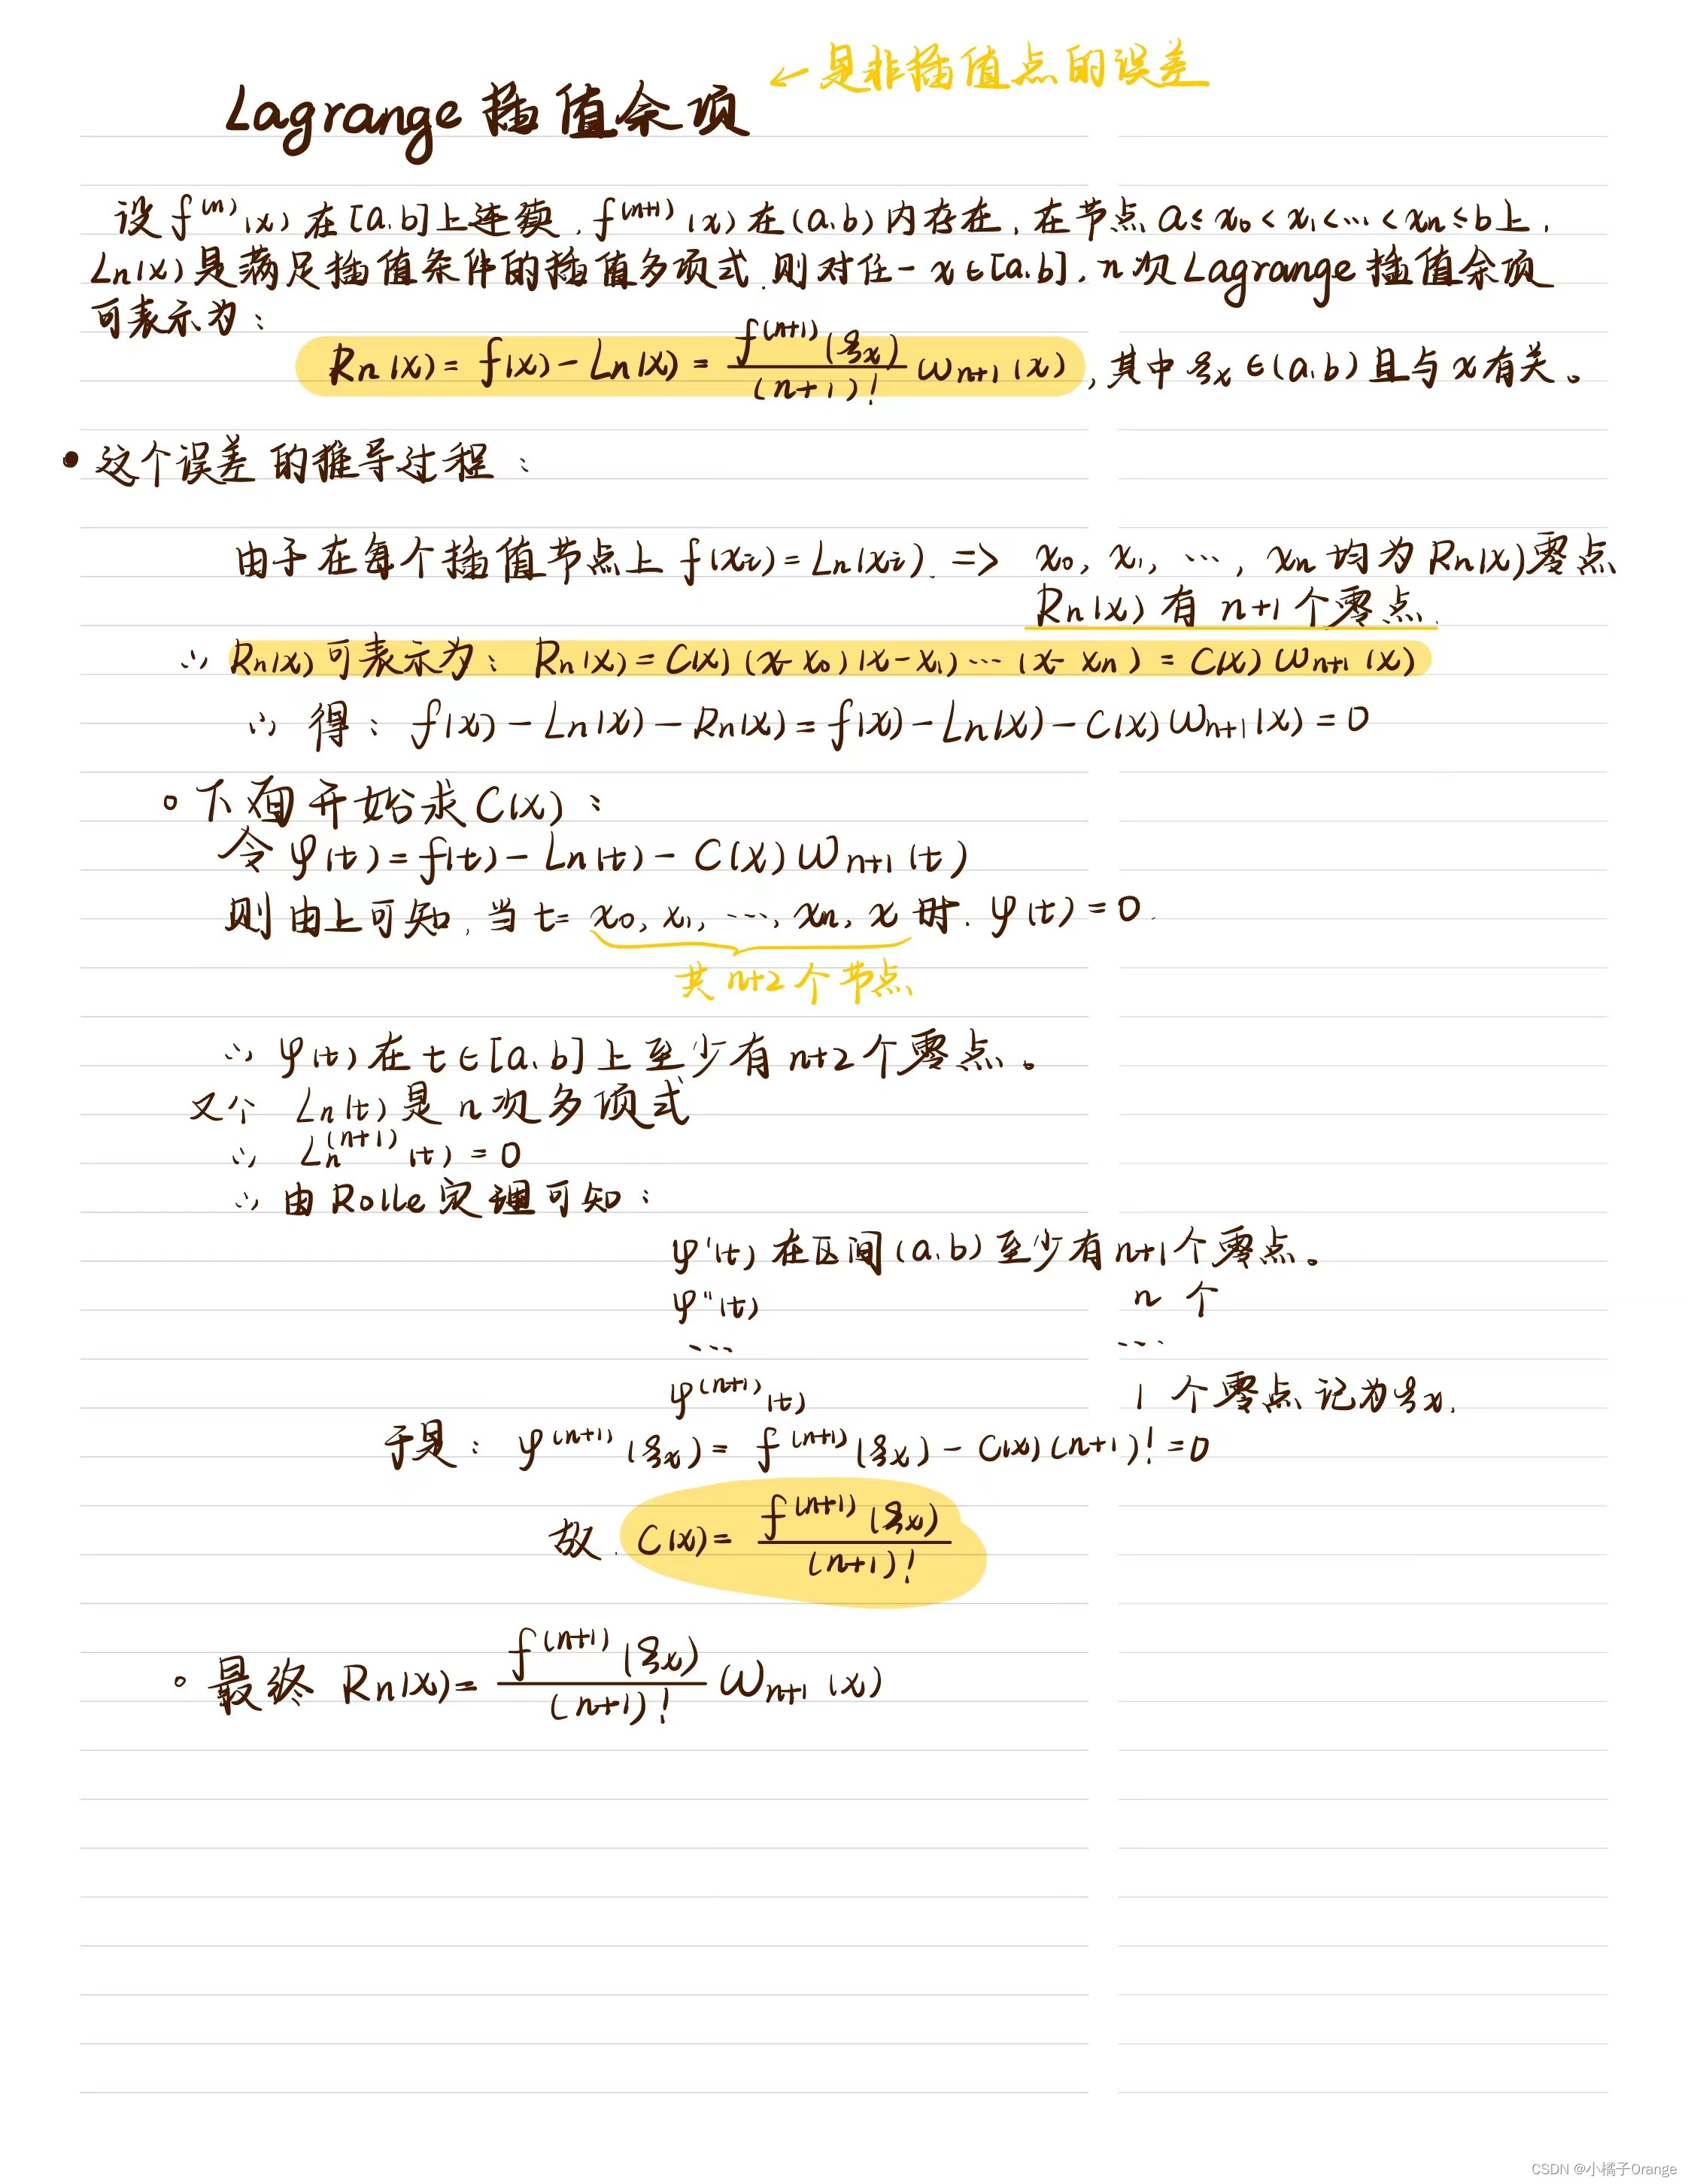 ← 是非插值点的误差
Lagrange 插值余项
设 f⁽ⁿ⁾(x) 在[a,b]上连续, f⁽ⁿ⁺¹⁾(x) 在(a,b)内存在, 在节点 a≤x₀<x₁<…<xₙ≤b上,
Lₙ(x)是满足插值条件的插值多项式.则对任一 x∈[a,b], n次Lagrange 插值余项
可表示为:
Rₙ(x) = f(x) - Lₙ(x) = f⁽ⁿ⁺¹⁾(ξₓ)/(n+1)! ωₙ₊₁(x), 其中ξₓ∈(a,b)且与x有关。
• 这个误差的推导过程:
由于在每个插值节点上 f(xᵢ)=Lₙ(xᵢ). => x₀, x₁, …, xₙ 均为 Rₙ(x)零点
Rₙ(x) 有 n+1 个零点.
∴ Rₙ(x)可表示为: Rₙ(x) = C(x)(x-x₀)(x-x₁)…(x-xₙ) = C(x)ωₙ₊₁(x)
∴ 得: f(x) - Lₙ(x) - Rₙ(x) = f(x) - Lₙ(x) - C(x)ωₙ₊₁(x) = 0
◦ 下面开始求C(x):
令 φ(t) = f(t) - Lₙ(t) - C(x)ωₙ₊₁(t)
则由上可知, 当 t= x₀, x₁, …, xₙ, x 时. φ(t) = 0.
共 n+2 个节点
∴ φ(t) 在 t∈[a,b]上至少有 n+2个零点。
又个 Lₙ(t)是 n次多项式
∴ Lₙ⁽ⁿ⁺¹⁾(t) = 0
∴ 由Rolle定理可知:
φ'(t) 在区间(a,b)至少有n+1个零点。
φ''(t) n 个
… …
φ⁽ⁿ⁺¹⁾(t) 1 个零点记为ξₓ.
于是: φ⁽ⁿ⁺¹⁾(ξₓ) = f⁽ⁿ⁺¹⁾(ξₓ) - C(x)(n+1)! = 0
故. C(x) = f⁽ⁿ⁺¹⁾(ξₓ)/(n+1)!
◦ 最终 Rₙ(x) = f⁽ⁿ⁺¹⁾(ξₓ)/(n+1)! ωₙ₊₁(x)
CSDN @小橘子Orange